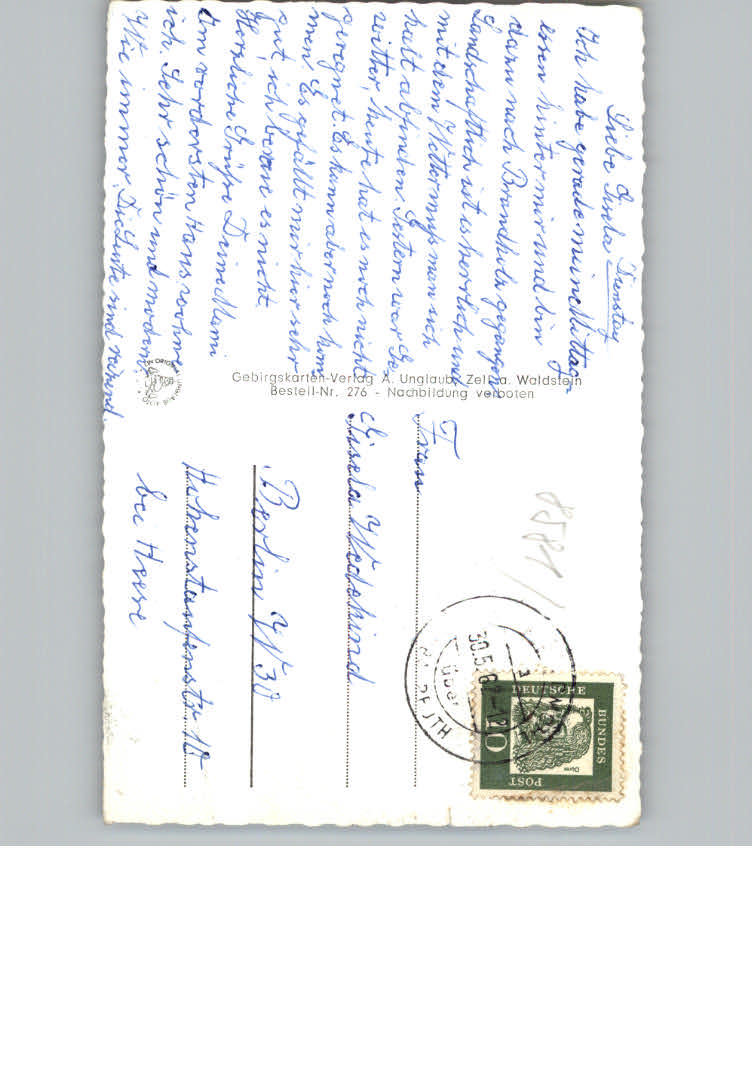 Dienstag
Liebe Gisela
Ich habe gerade mein Mittag-
essen hinter mir und bin
dann nach Brandholz gegangen
Landschaftlich ist es herrlich und
mit dem Wetter muß man sich
halt abfinden. Gestern war Ge-
witter, heute hat es noch nicht
geregnet. Es kann aber noch kom
men. Es gefällt mir hier sehr
gut, ich bereue es nicht.
Herzliche Grüße Deine Mami
Im vordersten Haus wohne
ich. Sehr schön und modern.
Wie immer. Die Leute sind reizend.
Gebirgskarten-Verlag A. Unglaub, Zell a. Waldstein
Bestell-Nr. 276 - Nachbildung verboten
Frau
Gisela Wedekind
Berlin W 30
Hohenstaufenstr 10
bei Heese
8581
30.5.6
über
REUTH
DEUTSCHE
BUNDES
POST
10
Dürer